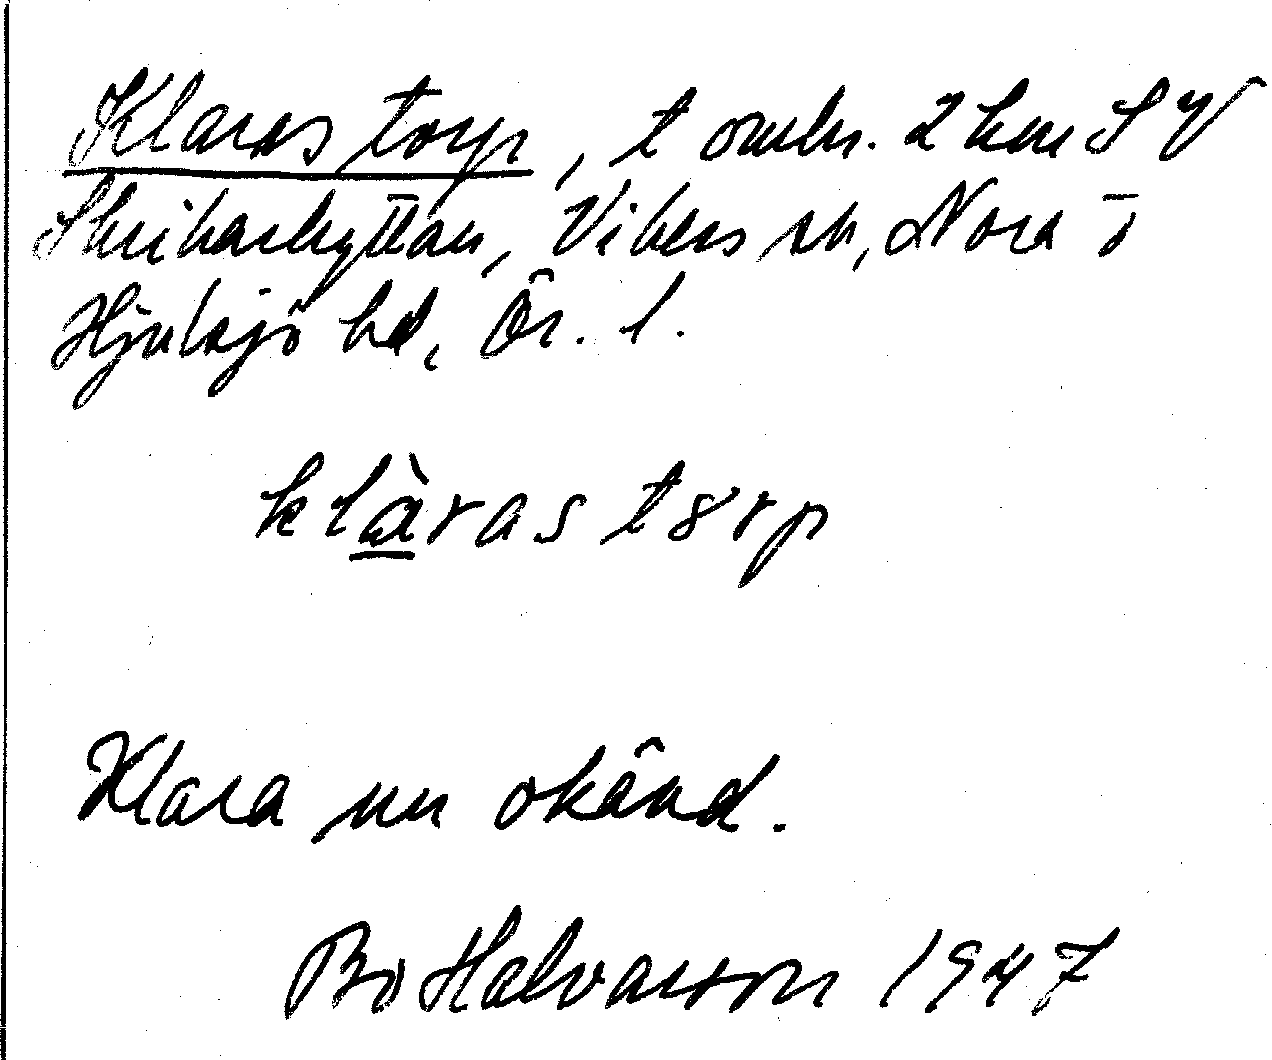 Klaras torp, t omkr. 2 km SV
Skrikarhyttan, Vikers sn, Nora o
Hjulsjö bd, Ör. l.
klàras t8rp
Klara nu okänd.
Bo Halvarson 1947